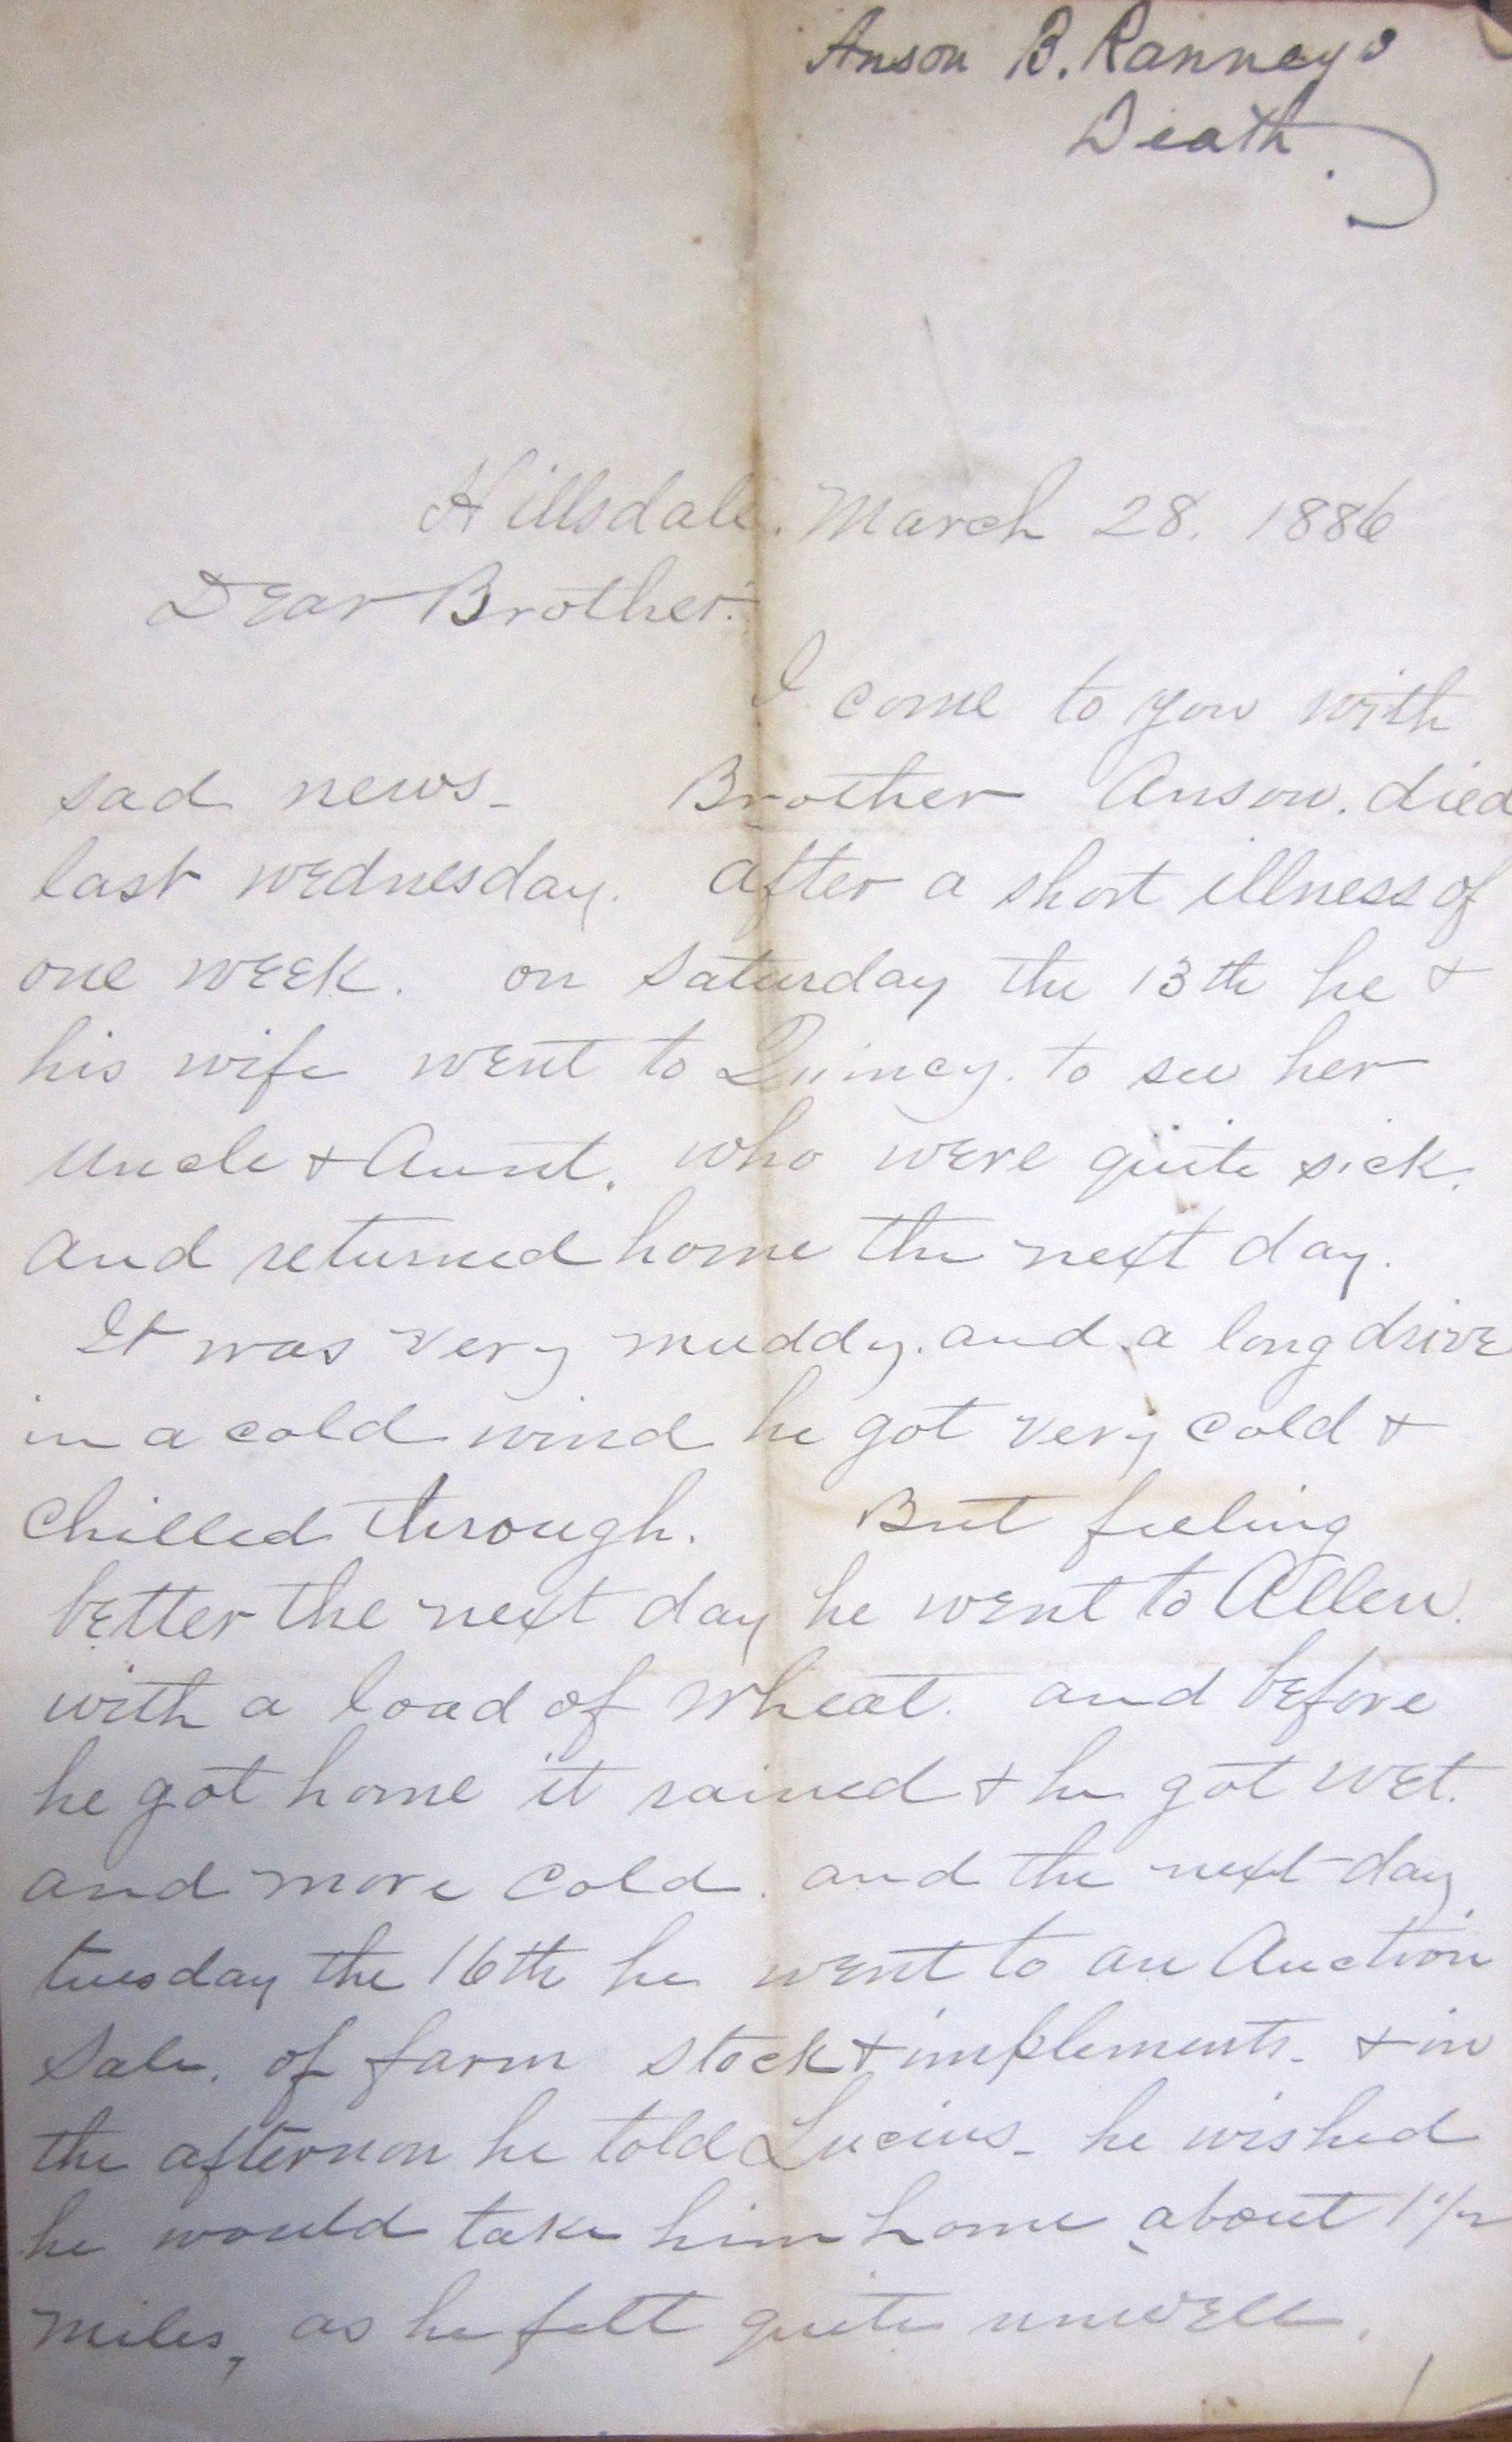 Anson B. Ranneys
Death.
Hillsdale. March 28. 1886
Dear Brother.
I come to you with
sad news- Brother Anson. died
last wednesday. after a short illness of
one week. on Saturday the 13th he &
his wife went to Quincy. to see her
Uncle & Aunt. who were quite sick.
and returned home the next day.
It was very muddy. and a long drive
in a cold wind he got very cold &
chilled through. But feeling
better the next day he went to Allen.
with a load of wheat. and before
he got home it rained & he got wet.
and more cold. and the next day
tuesday the 16th he went to an Auction
Sale. of farm stock & implements- & in
the afternon he told Lucius- he wished
he would take him home about 1 1/2
miles, as he felt quite unwell.
1